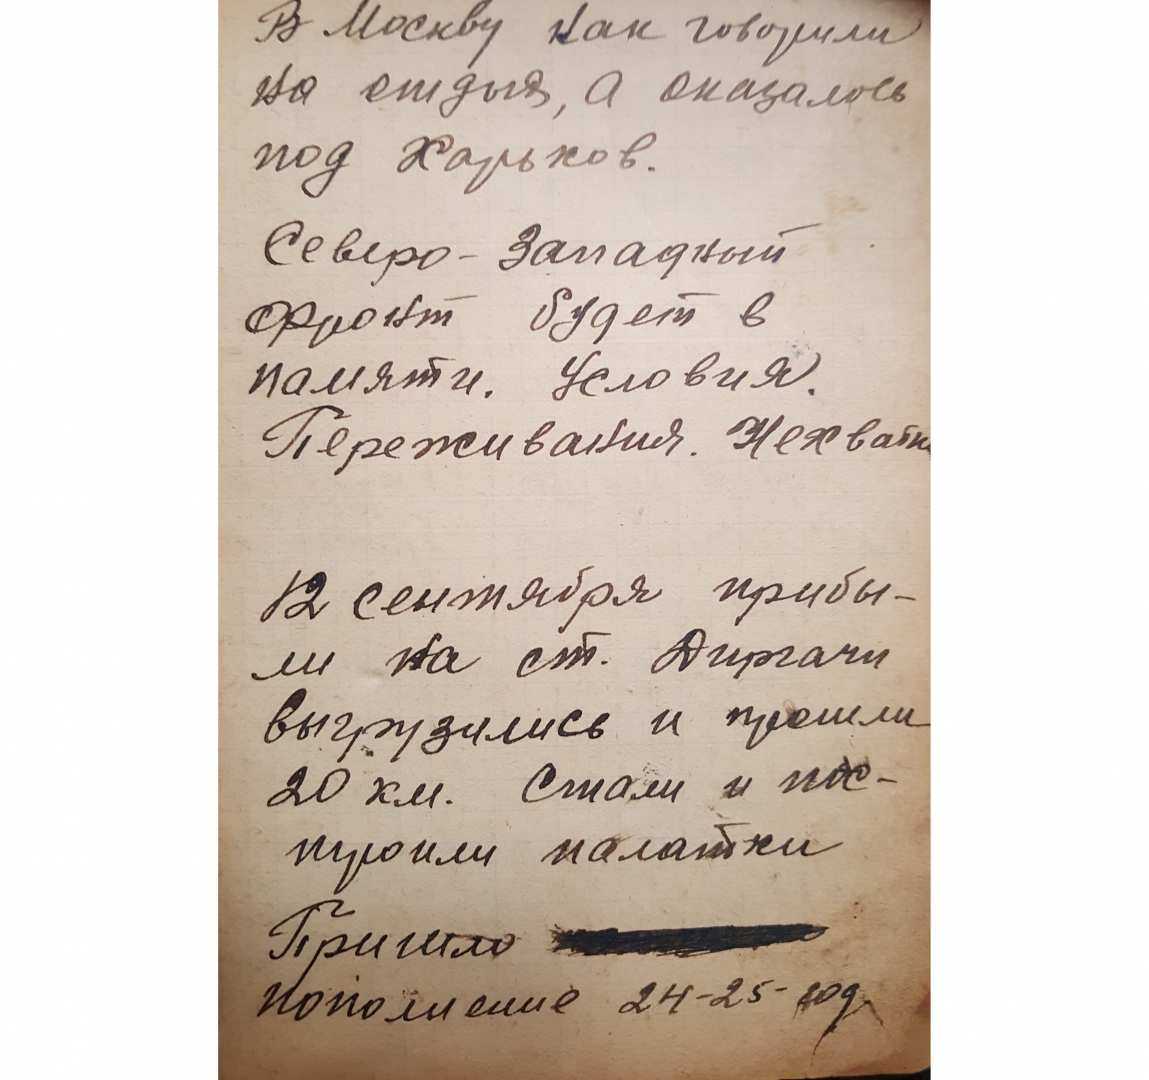 В Москву как говорили
на отдых, а оказалось
под Харьков.
Северо-Западный
фронт будет в
памяти. Условия.
Переживания. Нехватк
12 сентября прибы-
ли на ст. Диргачи
выгрузились и прошли
20 км. Стали и пос-
троили палатки
Пришло
пополнение 24-25- год